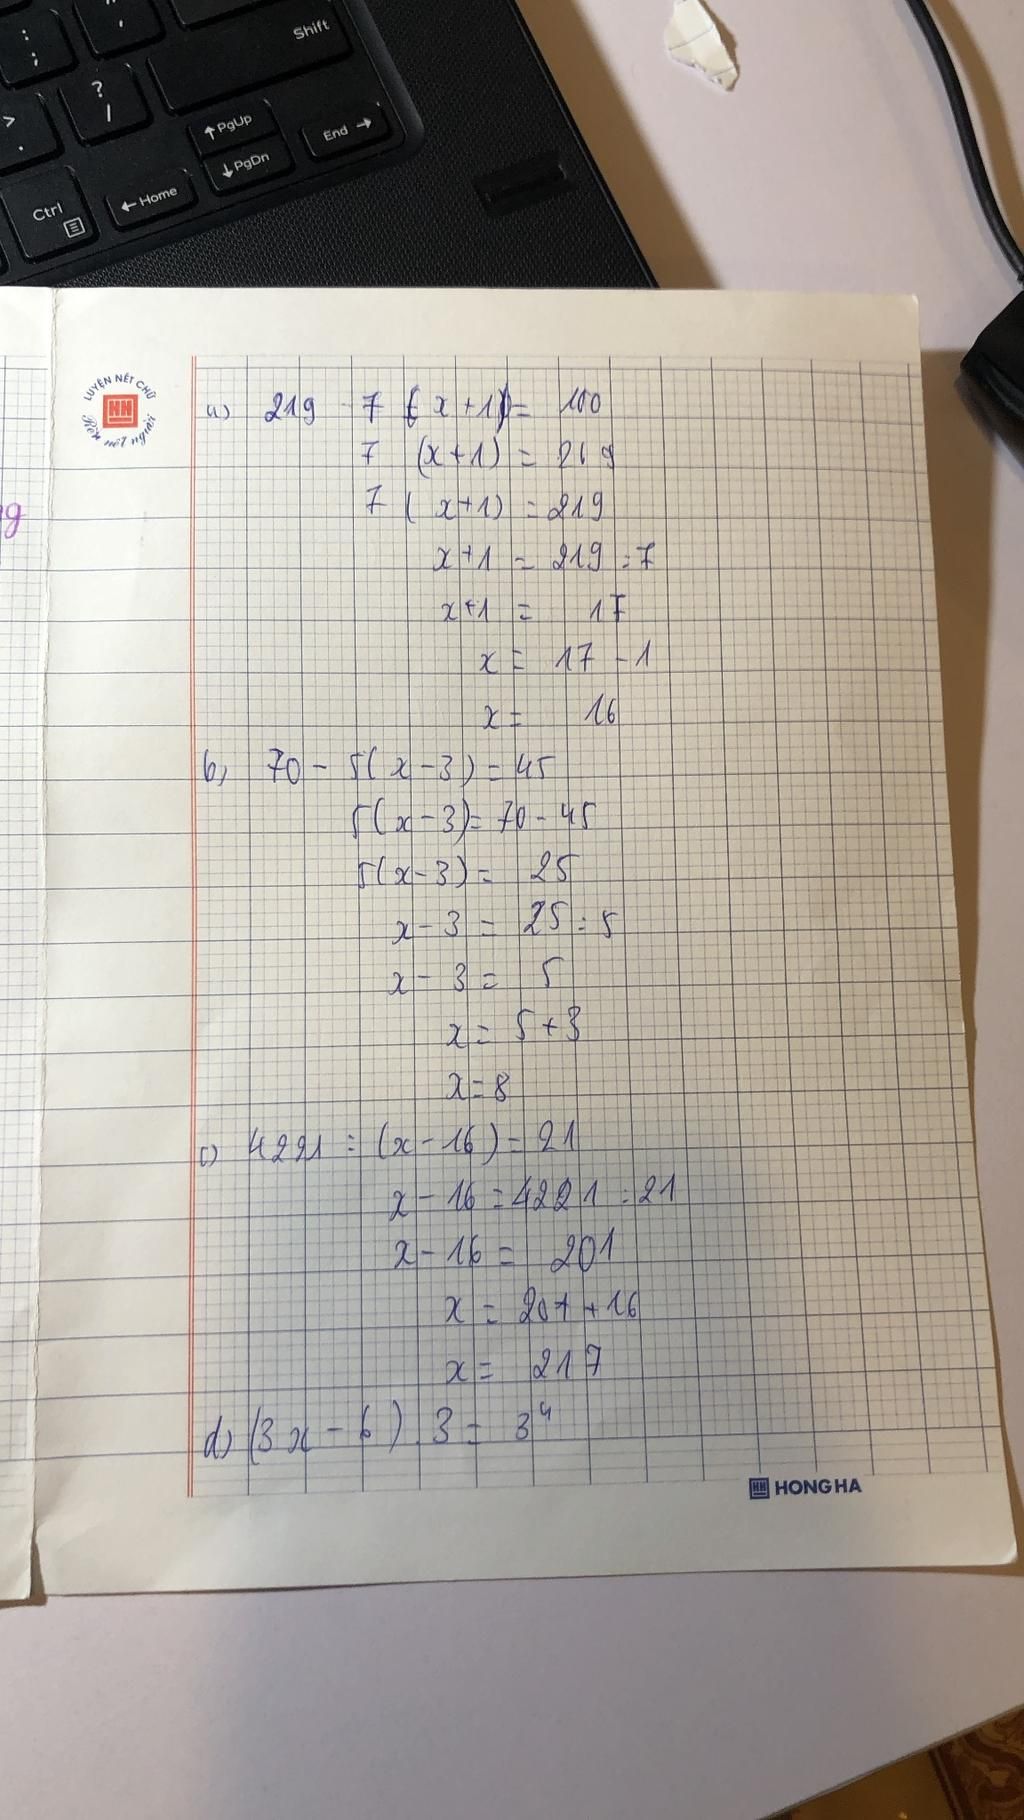 Shift
? /
↑ PgUp
End →
↓ PgDn
Ctrl
← Home
LUYỆN NÉT CHỮ
HH
Rèn nết người
g
a) 219 - 7 (x+1) = 100
7 (x+1) = 219
7 (x+1) = 219
x+1 = 219 : 7
x+1 = 17
x = 17 - 1
x = 16
b, 70 - 5(x-3) = 45
5(x-3) = 70 - 45
5(x-3) = 25
x - 3 = 25 : 5
x - 3 = 5
x = 5 + 3
x = 8
c) 4221 : (x-16) = 21
x - 16 = 4221 : 21
x - 16 = 201
x = 201 + 16
x = 217
d) (3x - 6) . 3 = 3⁴
HH HONG HA